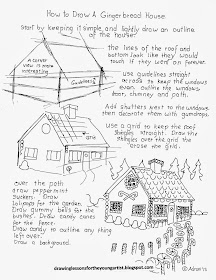 How to Draw A Gingerbread House
Start by keeping it simple and lightly draw an outline
of the house.
the lines of the roof and
bottom look like they would
touch if they went on forever.
A curved
view is more
interesting
Guidelines
use guidelines straight
across to keep the windows
even. outline the windows
door, chimney and path.
Add shutters next to the windows
then decorate them with gumdrops.
use a grid to keep the roof
Shingles straight. Draw the
Shingles over the grid the
erase the grid.
grid
over the path
draw peppermint
suckers. Draw
lollipops for the garden.
Draw gummy balls for the
bushes. Draw candy canes
for the fence.
Draw candy to outline any thing
left over.
Draw a background.
drawinglessonsfortheyoungartist.blogspot.com